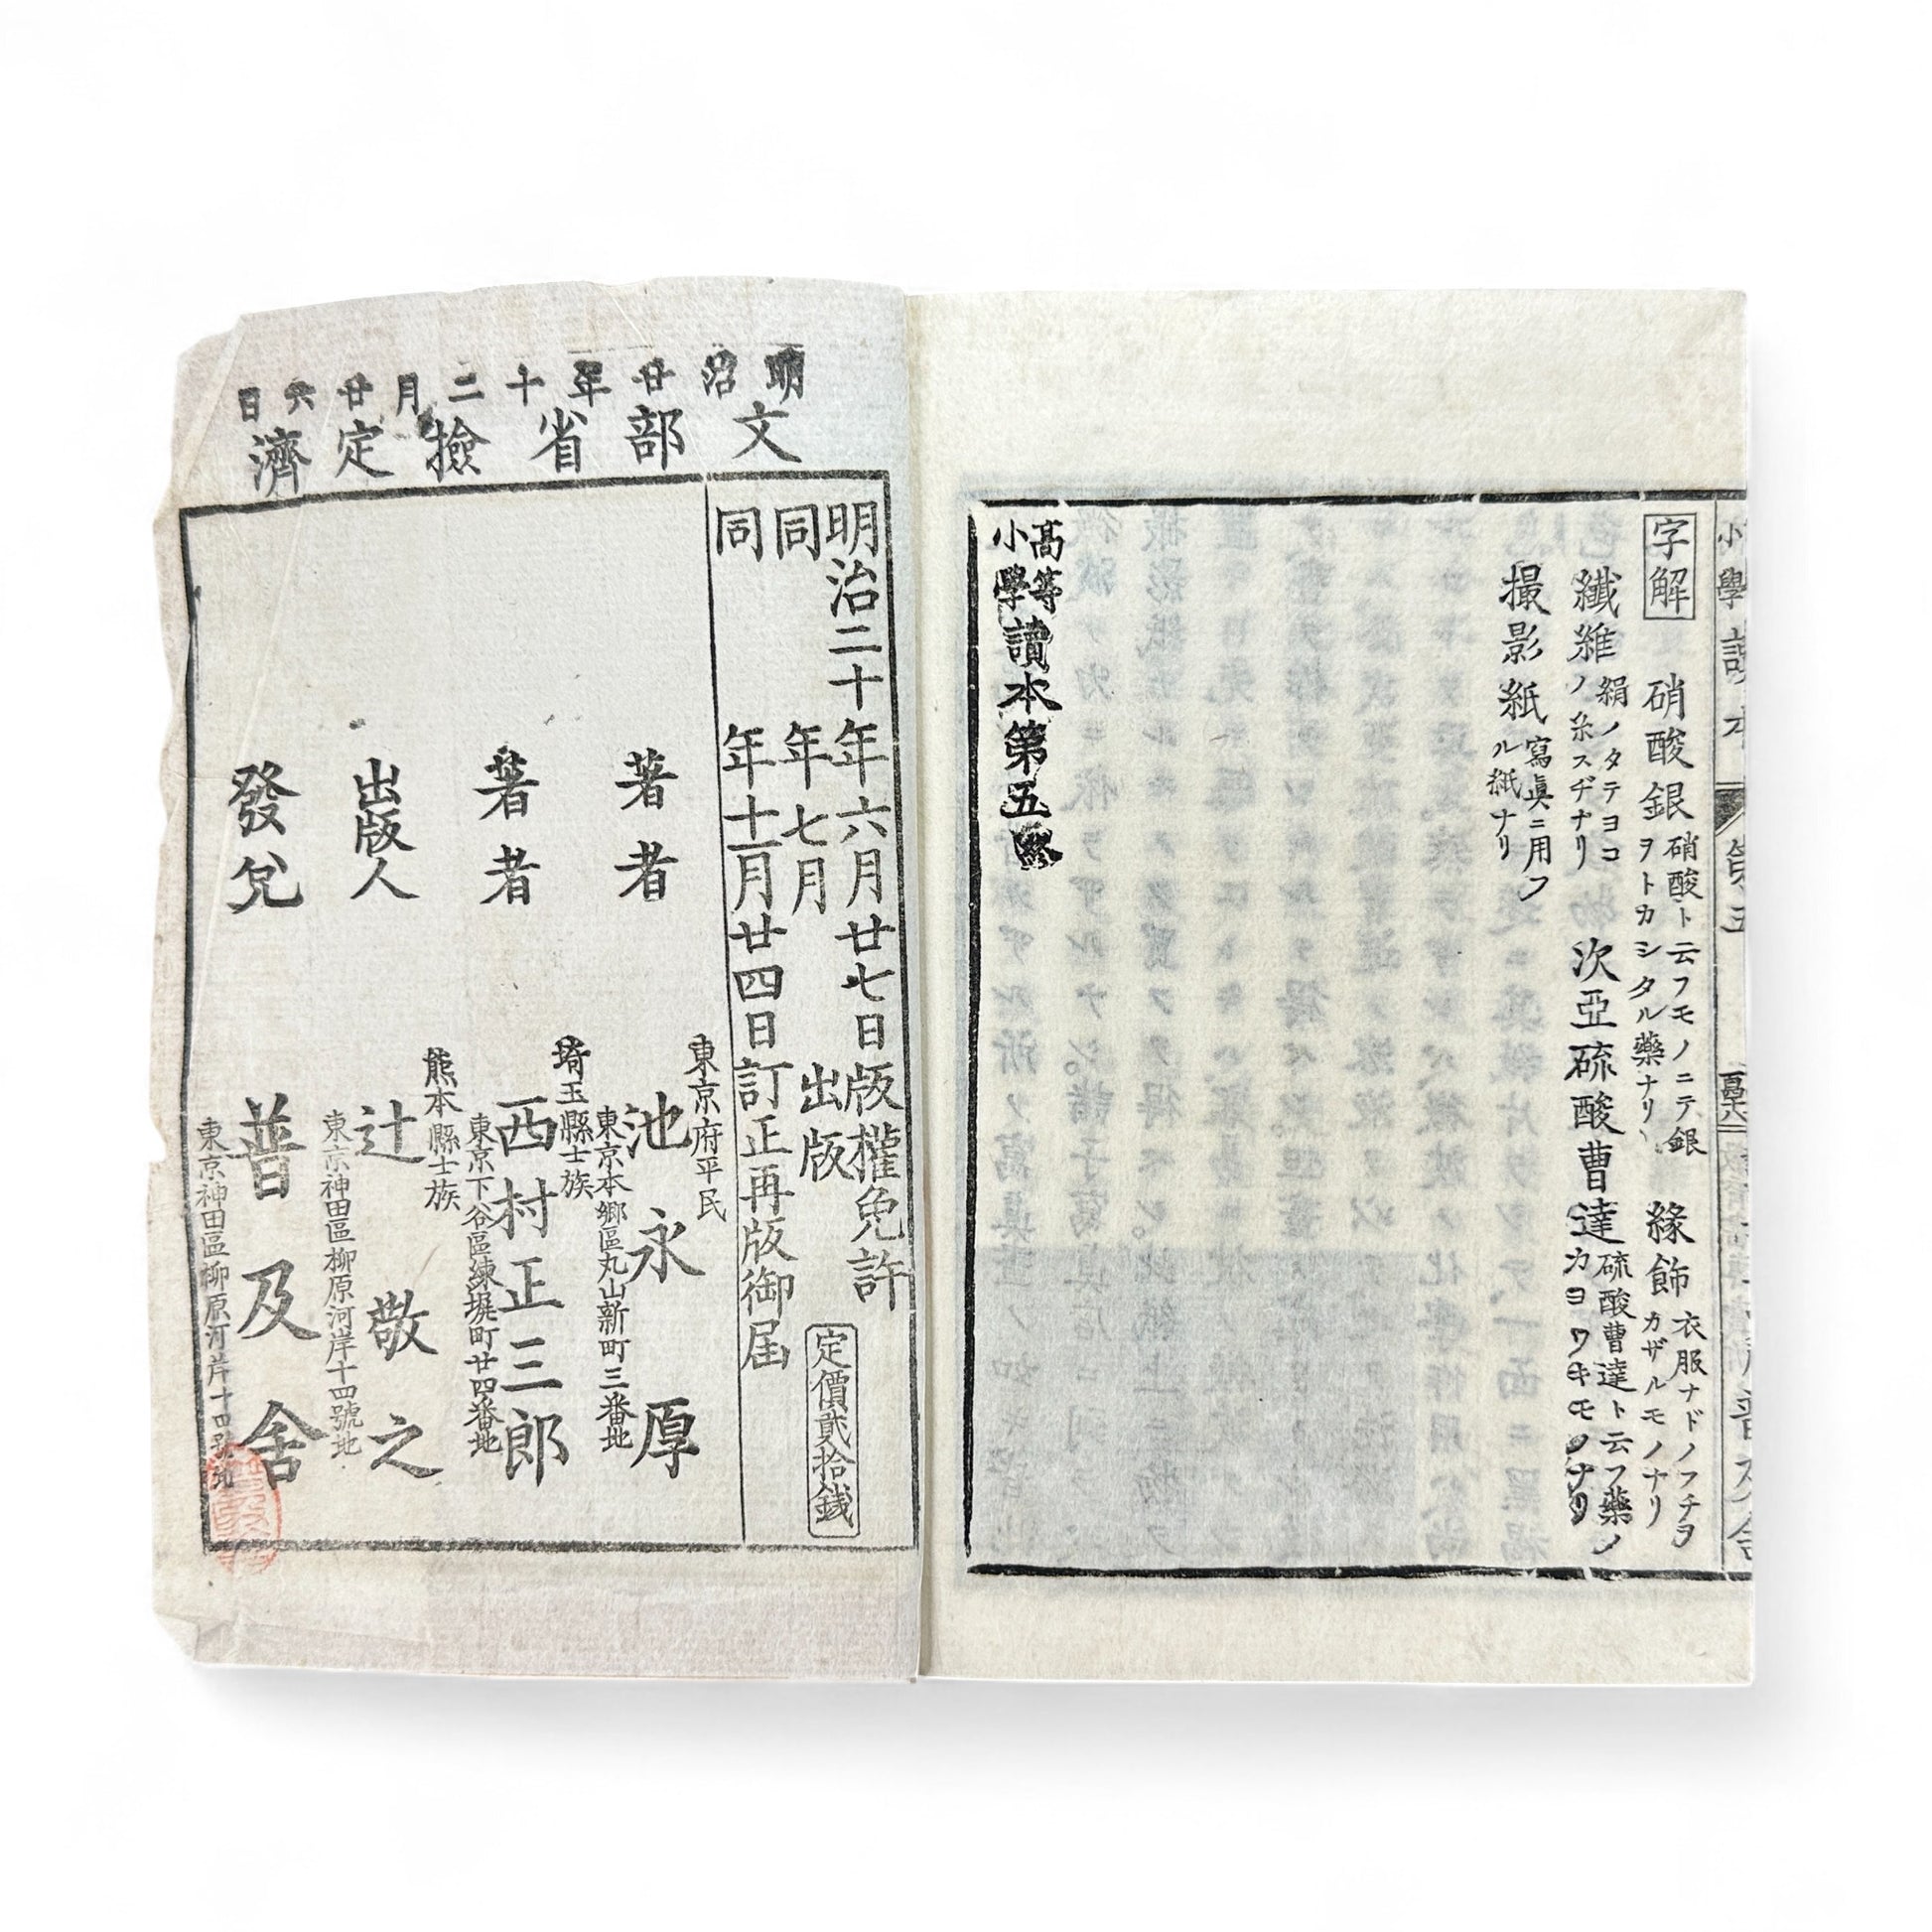 字解
硝酸銀 硝酸ト云フモノニテ銀ヲトカシタル藥ナリ
緣飾 衣服ナドノフチヲカザルモノナリ
纖維 絹ノタテヨコノ糸スヂナリ
次亞硫酸曹達 硫酸曹達ト云フ藥ノカヨワキモノナリ
撮影紙 寫眞ニ用フル紙ナリ
高等小學讀本第五終
明治廿年十二月廿六日
文部省檢定濟
明治二十年六月廿七日版權免許
同年七月出版
同年十一月廿四日訂正再版御届
定價貳拾錢
東京府平民
著者 池永厚
東京本鄉區丸山新町三番地
埼玉縣士族
著者 西村正三郎
東京下谷區練塀町廿四番地
熊本縣士族
出版人 辻敬之
東京神田區柳原河岸十四號地
發兌 普及舍
東京神田區柳原河岸十四號地